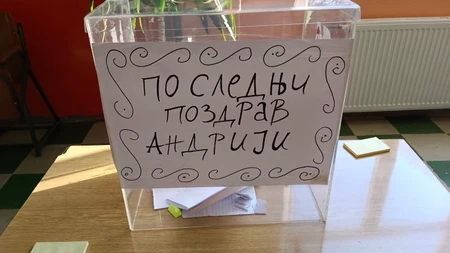 ПОСЛЕДЊИ
ПОЗДРАВ
АНДРИЈИ